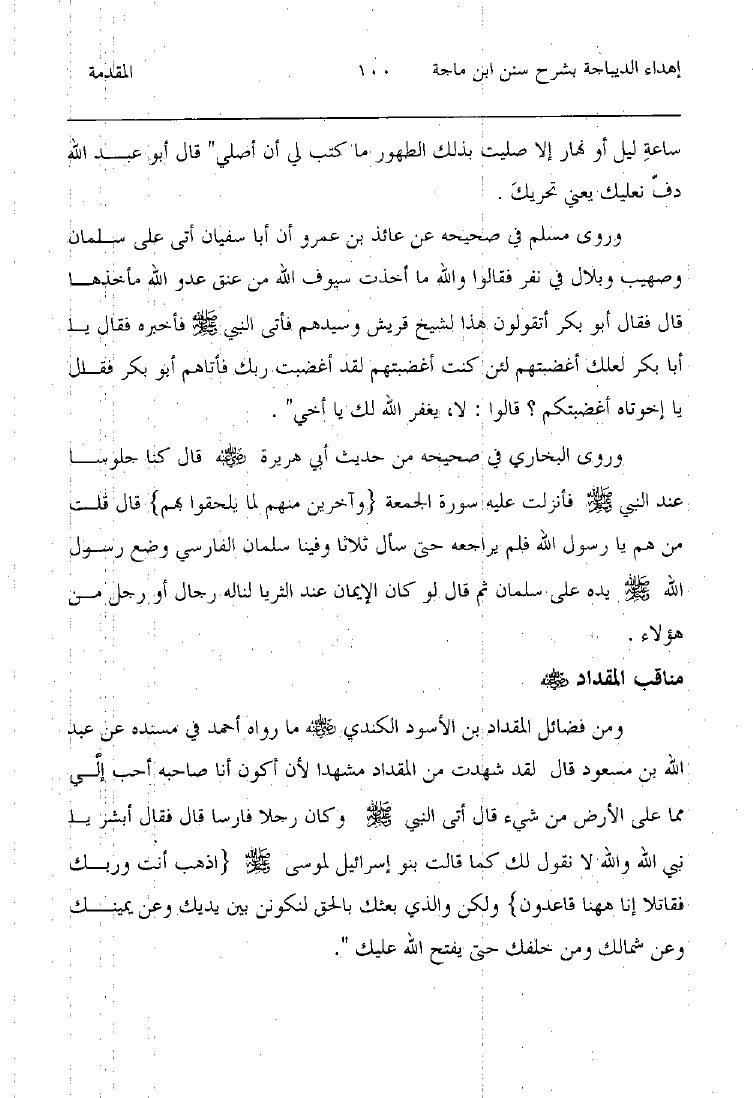 إهداء الديباجة بشرح سنن ابن ماجة ١٠٠ المقدمة
ساعةِ ليل أو نهار إلا صليت بذلك الطهور ما كتب لي أن أصلي" قال أبو عبد الله
دفّ نعليك يعني تحريكَ .
وروى مسلم في صحيحه عن عائذ بن عمرو أن أبا سفيان أتى على سلمان
وصهيب وبلال في نفر فقالوا والله ما أخذت سيوف الله من عنق عدو الله مأخذها
قال فقال أبو بكر أتقولون هذا لشيخ قريش وسيدهم فأتى النبي ﷺ فأخبره فقال يا
أبا بكر لعلك أغضبتهم لئن كنت أغضبتهم لقد أغضبت ربك فأتاهم أبو بكر فقال
يا إخوتاه أغضبتكم ؟ قالوا : لا، يغفر الله لك يا أخي" .
وروى البخاري في صحيحه من حديث أبي هريرة ﵁ قال كنا جلوسا
عند النبي ﷺ فأنزلت عليه سورة الجمعة {وآخرين منهم لما يلحقوا بهم} قال قلت
من هم يا رسول الله فلم يراجعه حتى سأل ثلاثا وفينا سلمان الفارسي وضع رسول
الله ﷺ يده على سلمان ثم قال لو كان الإيمان عند الثريا لناله رجال أو رجل من
هؤلاء .
مناقب المقداد ﵁
ومن فضائل المقداد بن الأسود الكندي ﵁ ما رواه أحمد في مسنده عن عبد
الله بن مسعود قال لقد شهدت من المقداد مشهدا لأن أكون أنا صاحبه أحب إلَّي
مما على الأرض من شيء قال أتى النبي ﷺ وكان رجلا فارسا قال فقال أبشر يا
نبي الله والله لا نقول لك كما قالت بنو إسرائيل لموسى ﷺ {اذهب أنت وربك
فقاتلا إنا ههنا قاعدون} ولكن والذي بعثك بالحق لنكونن بين يديك وعن يمينك
وعن شمالك ومن خلفك حتى يفتح الله عليك ".